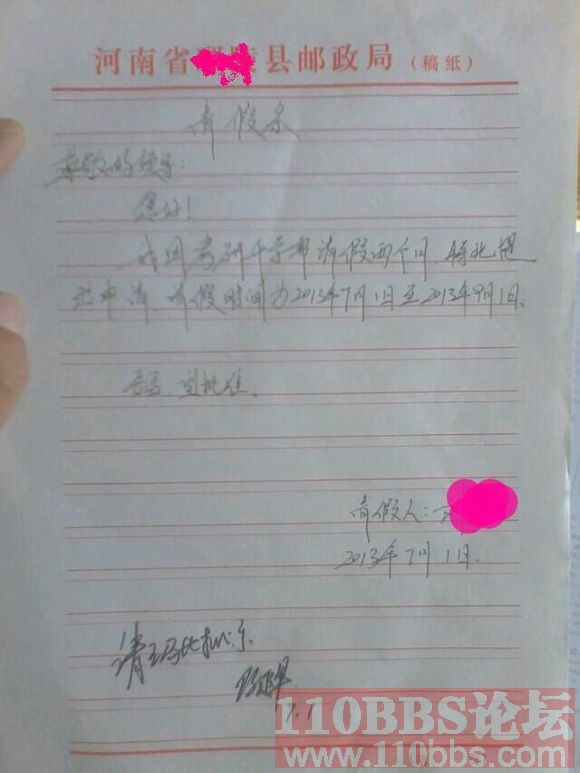 河南省 陵县邮政局（稿纸）
请假条
尊敬的领导：
您好！
我因考研 请假两个月，特此提
出申请，请假时间为2013年7月1日至2013年9月1日。
望批准
请假人：
2013年7月1日.
请 局 批示
7.1
110BBS论坛
www.110bbs.com